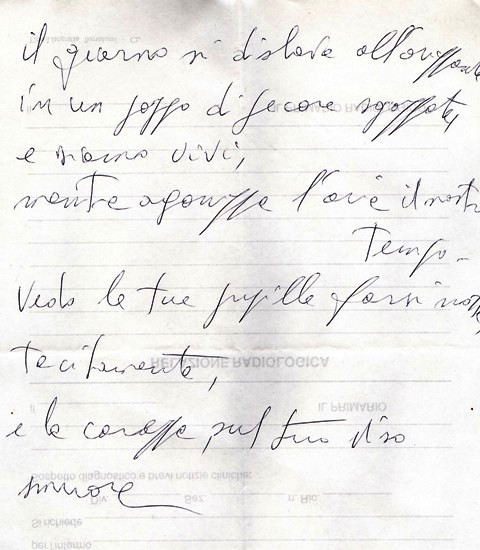 il giorno si dislava all'orizzonte
IL PRIMARIO
in un di pecore sgozzate,
e siamo vivi,
mentre agonizza il nostro
tempo.
Vedo le tue pupille farsi notte,
RELAZIONE RADIOLOGICA
tacitamente,
IL PRIMARIO
e la carezza sul tuo viso
Sospetto diagnostico e brevi notizie cliniche:
muore
Div. Sez. n. Ric.
Si richiede
per l'infermo